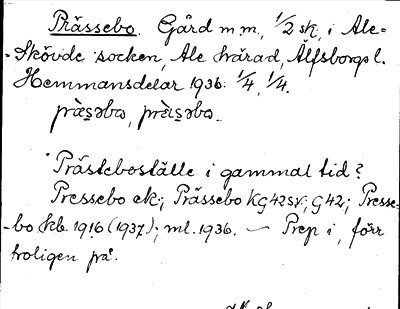 Prässebo. Gård m m, 1/2 sk, i Ale-
-Skövde socken, Ale härad, Älfsborgs l.
Hemmansdelar 1936: 1/4, 1/4.
Prästeboställe i gammal tid?
Pressebo ek; Prässebo KG42sv; G42; Presse-
-bo kb. 1916 (1937); ml. 1936. — Prep i, förr
troligen på.